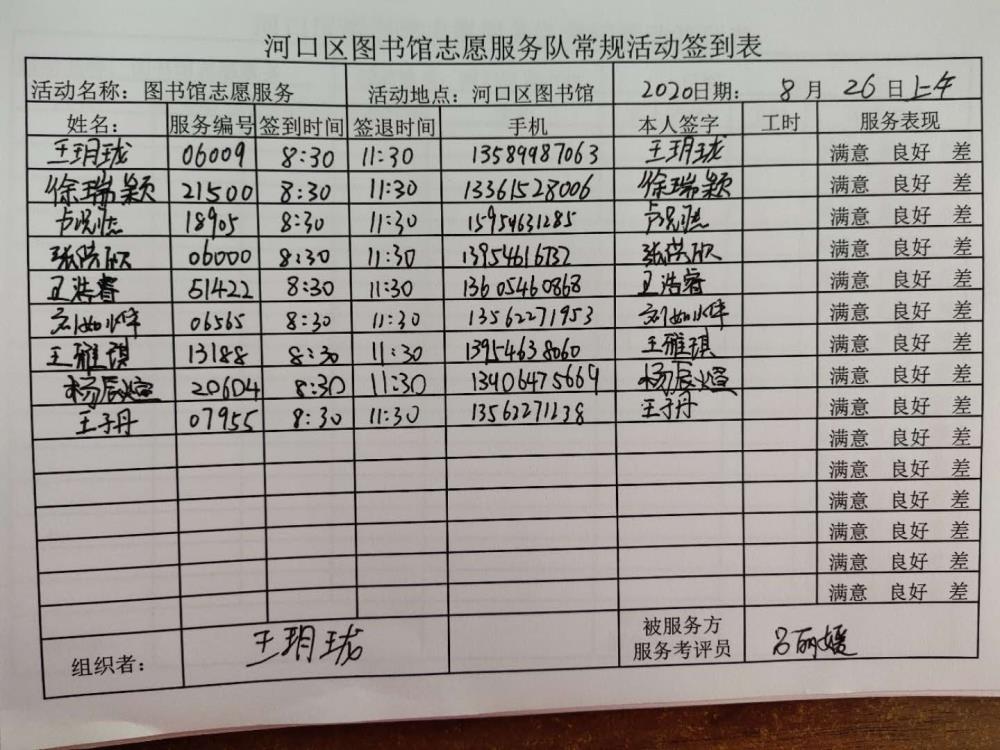 河口区图书馆志愿服务队常规活动签到表
活动名称：图书馆志愿服务 活动地点：河口区图书馆 2020日期： 8 月 26 日上午
姓名： 服务编号 签到时间 签退时间 手机 本人签字 工时 服务表现
王玥珑 06009 8:30 11:30 13589987063 王玥珑 满意 良好 差
徐瑞颖 21500 8:30 11:30 13361528006 徐瑞颖 满意 良好 差
18905 8:30 11:30 15954631285 满意 良好 差
张洪欣 06000 8:30 11:30 13954616732 张洪欣 满意 良好 差
卫浩睿 51422 8:30 11:30 13605460868 卫浩睿 满意 良好 差
06565 8:30 11:30 13562271953 满意 良好 差
王雅琪 13188 8:30 11:30 13954638060 王雅琪 满意 良好 差
杨辰煊 20604 8:30 11:30 13406475669 杨辰煊 满意 良好 差
王子丹 07955 8:30 11:30 13562271238 王子丹 满意 良好 差
满意 良好 差
满意 良好 差
满意 良好 差
满意 良好 差
满意 良好 差
满意 良好 差
组织者： 王玥珑 被服务方 吕丽媛
服务考评员